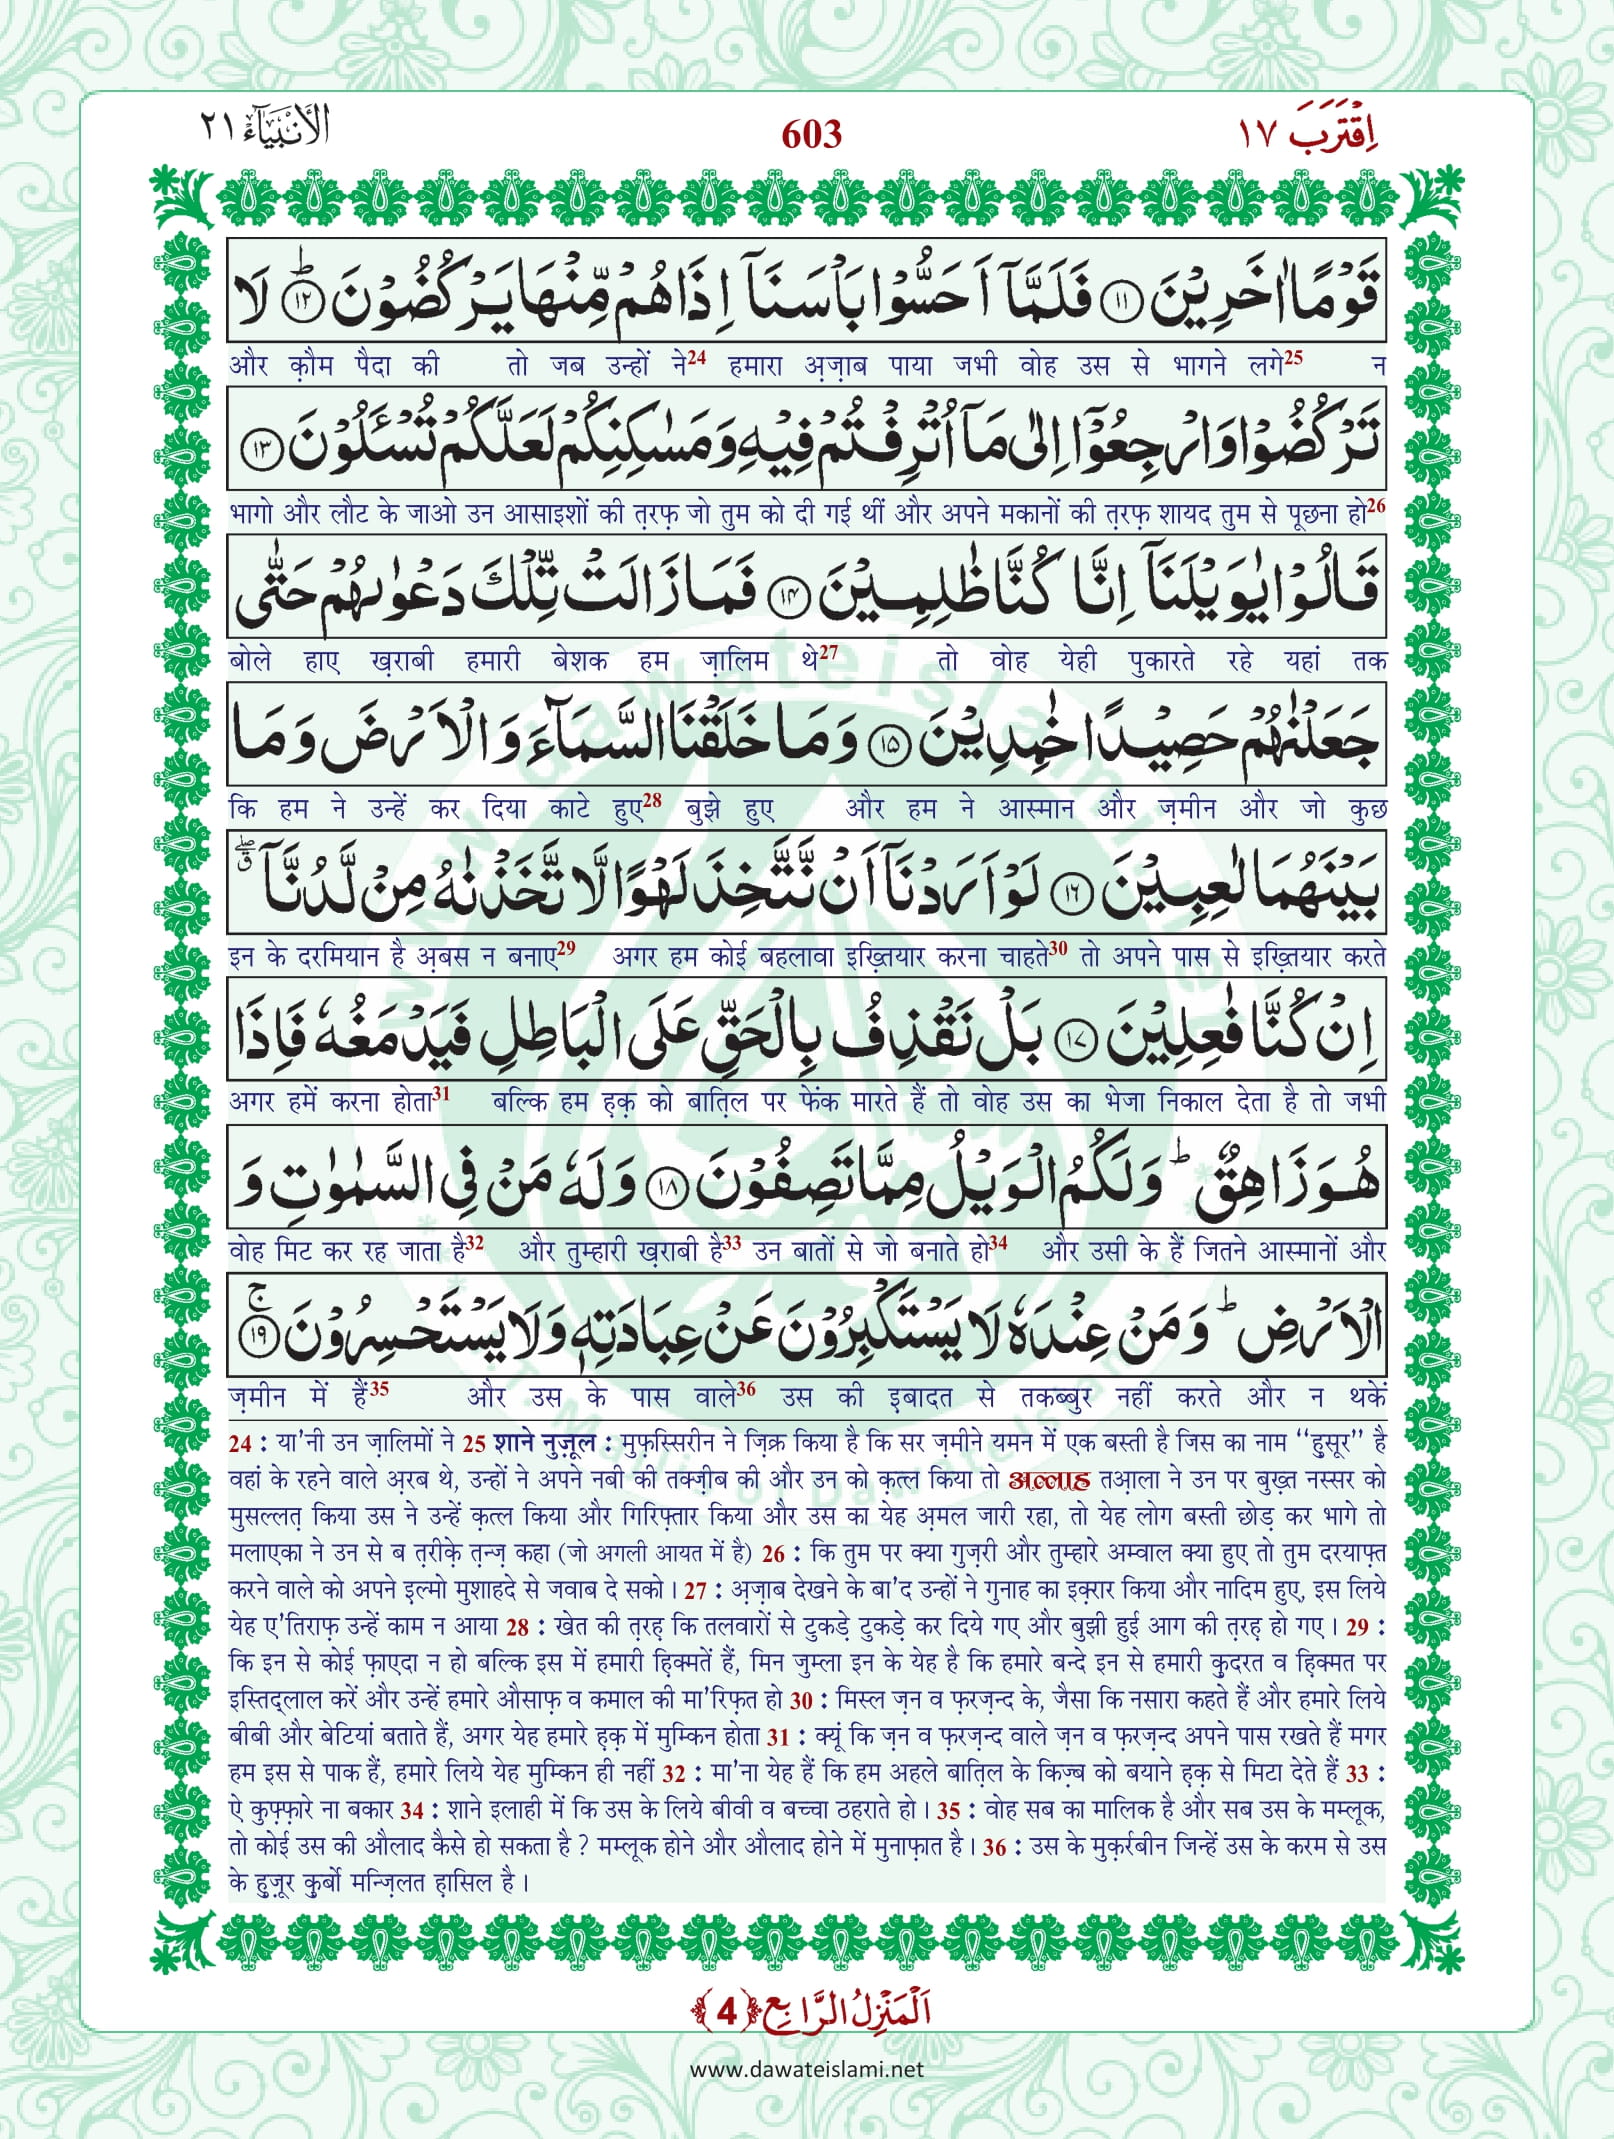 اِقْتَرَبَ ١٧
603
الْاَنْۢبِيَآء ٢١
قَوْمًا اٰخَرِيْنَ ﴿١١﴾ فَلَمَّاۤ اَحَسُّوْا بَاْسَنَاۤ اِذَا هُمْ مِّنْهَا يَرْكُضُوْنَ ؕ﴿١٢﴾ لَا
और क़ौम पैदा की तो जब उन्हों ने24 हमारा अ़ज़ाब पाया जभी वोह उस से भागने लगे25 न
تَرْكُضُوْا وَارْجِعُوْۤا اِلٰى مَاۤ اُتْرِفْتُمْ فِيْهِ وَمَسٰكِنِكُمْ لَعَلَّكُمْ تُسْـَٔلُوْنَ ﴿١٣﴾
भागो और लौट के जाओ उन आसाइशों की त़रफ़ जो तुम को दी गई थीं और अपने मकानों की त़रफ़ शायद तुम से पूछना हो26
قَالُوْا يٰوَيْلَنَاۤ اِنَّا كُنَّا ظٰلِمِيْنَ ﴿١٤﴾ فَمَا زَالَتْ تِّلْكَ دَعْوٰىهُمْ حَتّٰى
बोले हाए ख़राबी हमारी बेशक हम ज़ालिम थे27 तो वोह येही पुकारते रहे यहां तक
جَعَلْنٰهُمْ حَصِيْدًا خٰمِدِيْنَ ﴿١٥﴾ وَمَا خَلَقْنَا السَّمَآءَ وَالْاَرْضَ وَمَا
कि हम ने उन्हें कर दिया काटे हुए28 बुझे हुए और हम ने आस्मान और ज़मीन और जो कुछ
بَيْنَهُمَا لٰعِبِيْنَ ﴿١٦﴾ لَوْ اَرَدْنَاۤ اَنْ نَّتَّخِذَ لَهْوًا لَّا تَّخَذْنٰهُ مِنْ لَّدُنَّاۤ ۖق
इन के दरमियान है अ़बस न बनाए29 अगर हम कोई बहलावा इख़्तियार करना चाहते30 तो अपने पास से इख़्तियार करते
اِنْ كُنَّا فٰعِلِيْنَ ﴿١٧﴾ بَلْ نَقْذِفُ بِالْحَقِّ عَلَى الْبَاطِلِ فَيَدْمَغُهٗ فَاِذَا
अगर हमें करना होता31 बल्कि हम ह़क़ को बात़िल पर फेंक मारते हैं तो वोह उस का भेजा निकाल देता है तो जभी
هُوَ زَاهِقٌ ؕ وَلَكُمُ الْوَيْلُ مِمَّا تَصِفُوْنَ ﴿١٨﴾ وَلَهٗ مَنْ فِى السَّمٰوٰتِ وَ
वोह मिट कर रह जाता है32 और तुम्हारी ख़राबी है33 उन बातों से जो बनाते हो34 और उसी के हैं जितने आस्मानों और
الْاَرْضِ ؕ وَمَنْ عِنْدَهٗ لَا يَسْتَكْبِرُوْنَ عَنْ عِبَادَتِهٖ وَلَا يَسْتَحْسِرُوْنَ ۚ﴿١٩﴾
ज़मीन में हैं35 और उस के पास वाले36 उस की इबादत से तकब्बुर नहीं करते और न थकें
24 : या'नी उन ज़ालिमों ने 25 शाने नुज़ूल : मुफ़स्सिरीन ने ज़िक्र किया है कि सर ज़मीने यमन में एक बस्ती है जिस का नाम ‘‘ह़ुसूर’’ है
वहां के रहने वाले अ़रब थे, उन्हों ने अपने नबी की तक्ज़ीब की और उन को क़त्ल किया तो अल्लाह तआ़ला ने उन पर बुख़्त नस्सर को
मुसल्लत़ किया उस ने उन्हें क़त्ल किया और गिरिफ़्तार किया और उस का येह अ़मल जारी रहा, तो येह लोग बस्ती छोड़ कर भागे तो
मलाएका ने उन से ब त़रीक़े त़न्ज़ कहा (जो अगली आयत में है) 26 : कि तुम पर क्या गुज़री और तुम्हारे अम्वाल क्या हुए तो तुम दरयाफ़्त
करने वाले को अपने इ़ल्मो मुशाहदे से जवाब दे सको । 27 : अ़ज़ाब देखने के बा'द उन्हों ने गुनाह का इक़्रार किया और नादिम हुए, इस लिये
येह ए'तिराफ़ उन्हें काम न आया 28 : खेत की त़रह़ कि तलवारों से टुकड़े टुकड़े कर दिये गए और बुझी हुई आग की त़रह़ हो गए । 29 :
कि इन से कोई फ़ाएदा न हो बल्कि इस में हमारी ह़िक्मतें हैं, मिन जुम्ला इन के येह है कि हमारे बन्दे इन से हमारी कुदरत व ह़िक्मत पर
इस्तिद्लाल करें और उन्हें हमारे औसाफ़ व कमाल की मा'रिफ़त हो 30 : मिस्ल ज़न व फ़रज़न्द के, जैसा कि नसारा कहते हैं और हमारे लिये
बीबी और बेटियां बताते हैं, अगर येह हमारे ह़क़ में मुम्किन होता 31 : क्यूं कि ज़न व फ़रज़न्द वाले ज़न व फ़रज़न्द अपने पास रखते हैं मगर
हम इस से पाक हैं, हमारे लिये येह मुम्किन ही नहीं 32 : मा'ना येह हैं कि हम अहले बात़िल के किज़्ब को बयाने ह़क़ से मिटा देते हैं 33 :
ऐ कुफ़्फ़ारे ना बकार 34 : शाने इलाही में कि उस के लिये बीवी व बच्चा ठहराते हो । 35 : वोह सब का मालिक है और सब उस के मम्लूक,
तो कोई उस की औलाद कैसे हो सकता है ? मम्लूक होने और औलाद होने में मुनाफ़ात है । 36 : उस के मुक़र्रबीन जिन्हें उस के करम से उस
के ह़ुज़ूर क़ुर्बो मन्ज़िलत ह़ासिल है ।
اَلْمَنْزِلُ الرَّابِع ﴿4﴾
www.dawateislami.net